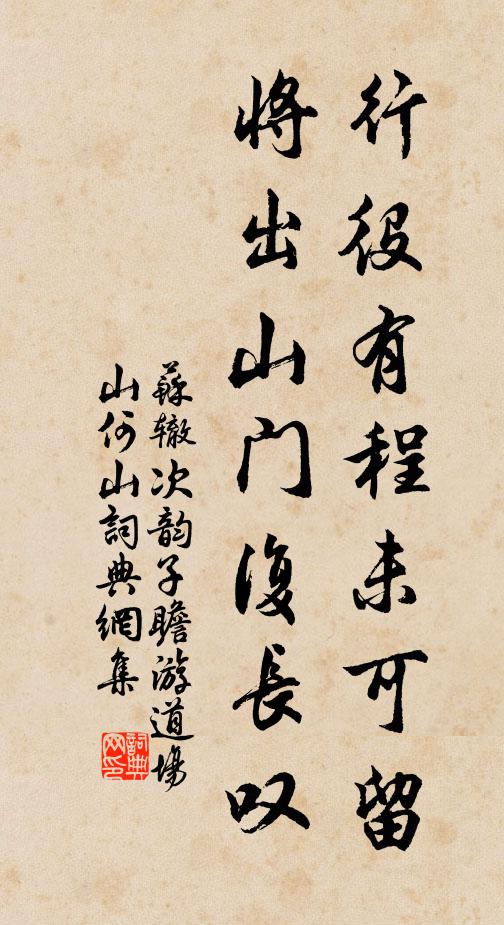 行役有程未可留
将出山门復長叹
蘇辙次韵子瞻游道場
山何山詞典網集
詞典网印